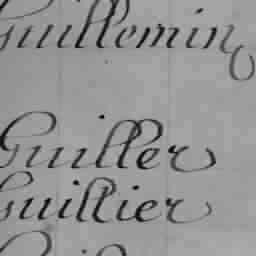 Guillemin
Guiller
Guillier